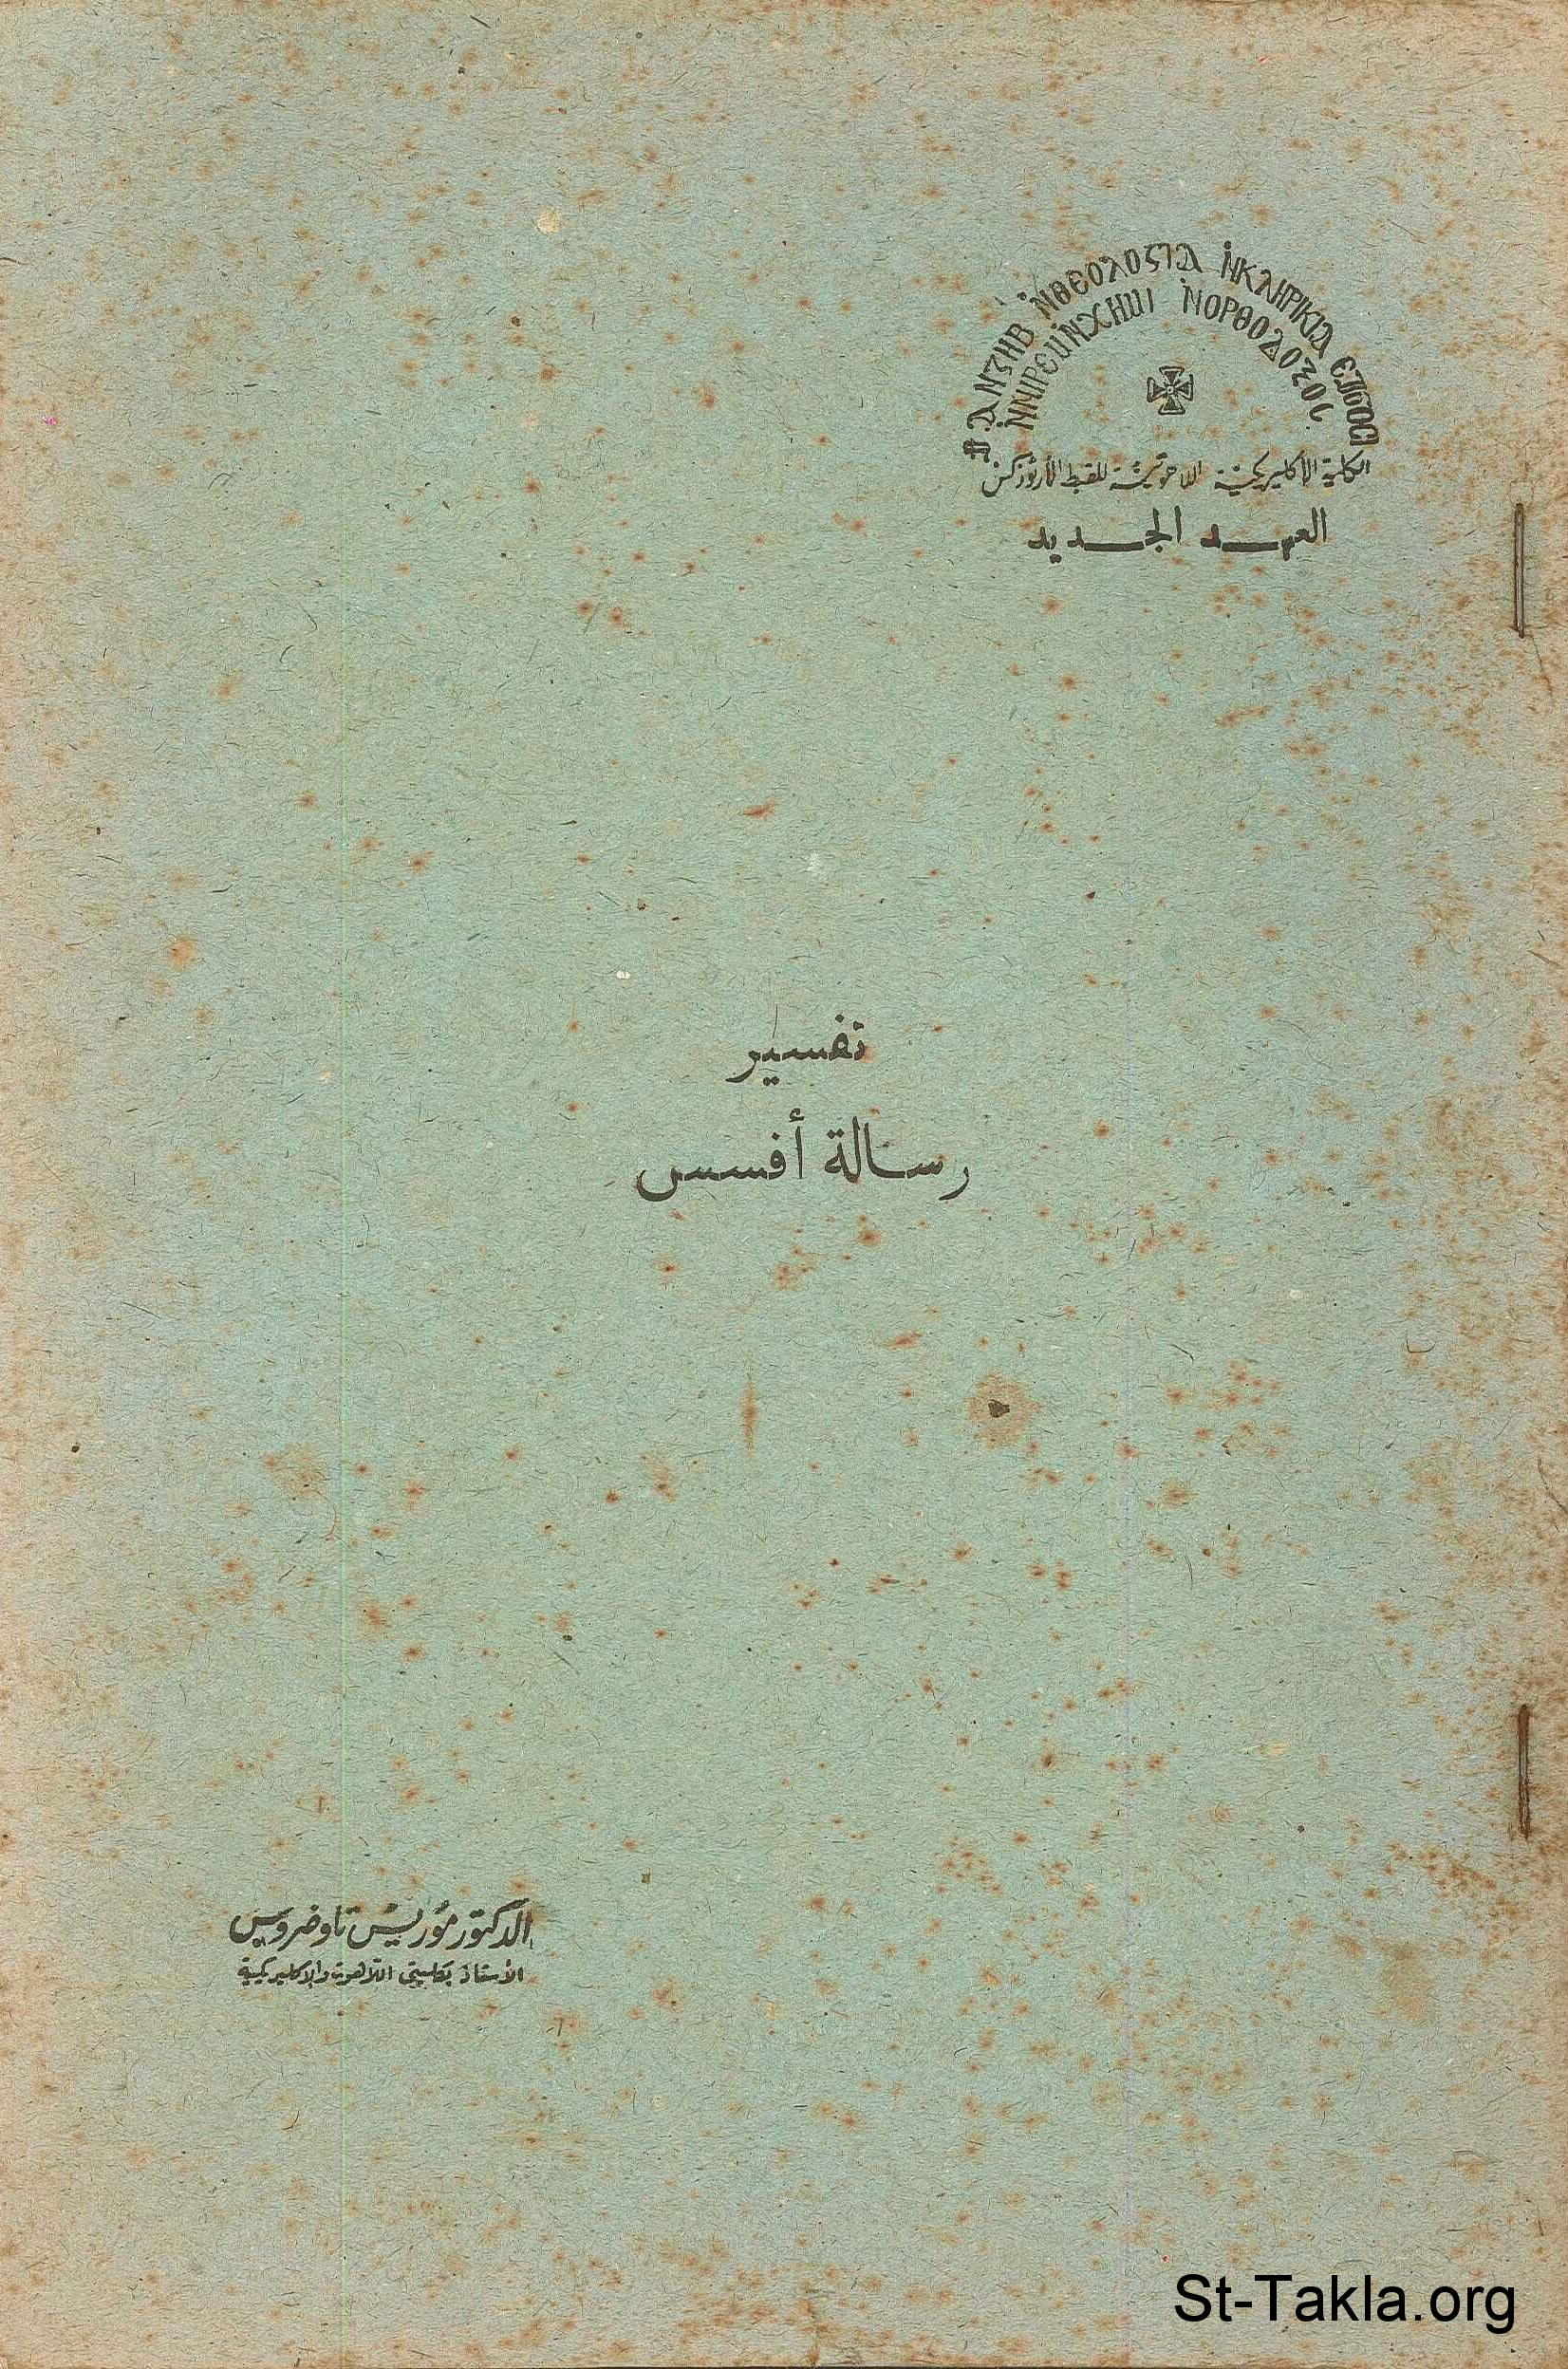 ⲠⲀⲚⲌⲎⲂ ⲚⲐⲈⲟⲗⲟⲅⲓⲁ ⲚⲔⲗⲏⲣⲓⲕⲓⲁ
ⲚⲚⲓⲣⲉⲙⲛⲭⲏⲙⲓ ⲚⲞⲢⲐⲞⲆⲞⲜⲞⲤ
الكلية الأكليريكية اللاهوتية للقبط الأرثوذكس
العهد الجديد
تفسير
رسالة أفسس
الدكتور موريس تاوضروس
الأستاذ بكليتى اللاهوت والإكليريكية
St-Takla.org